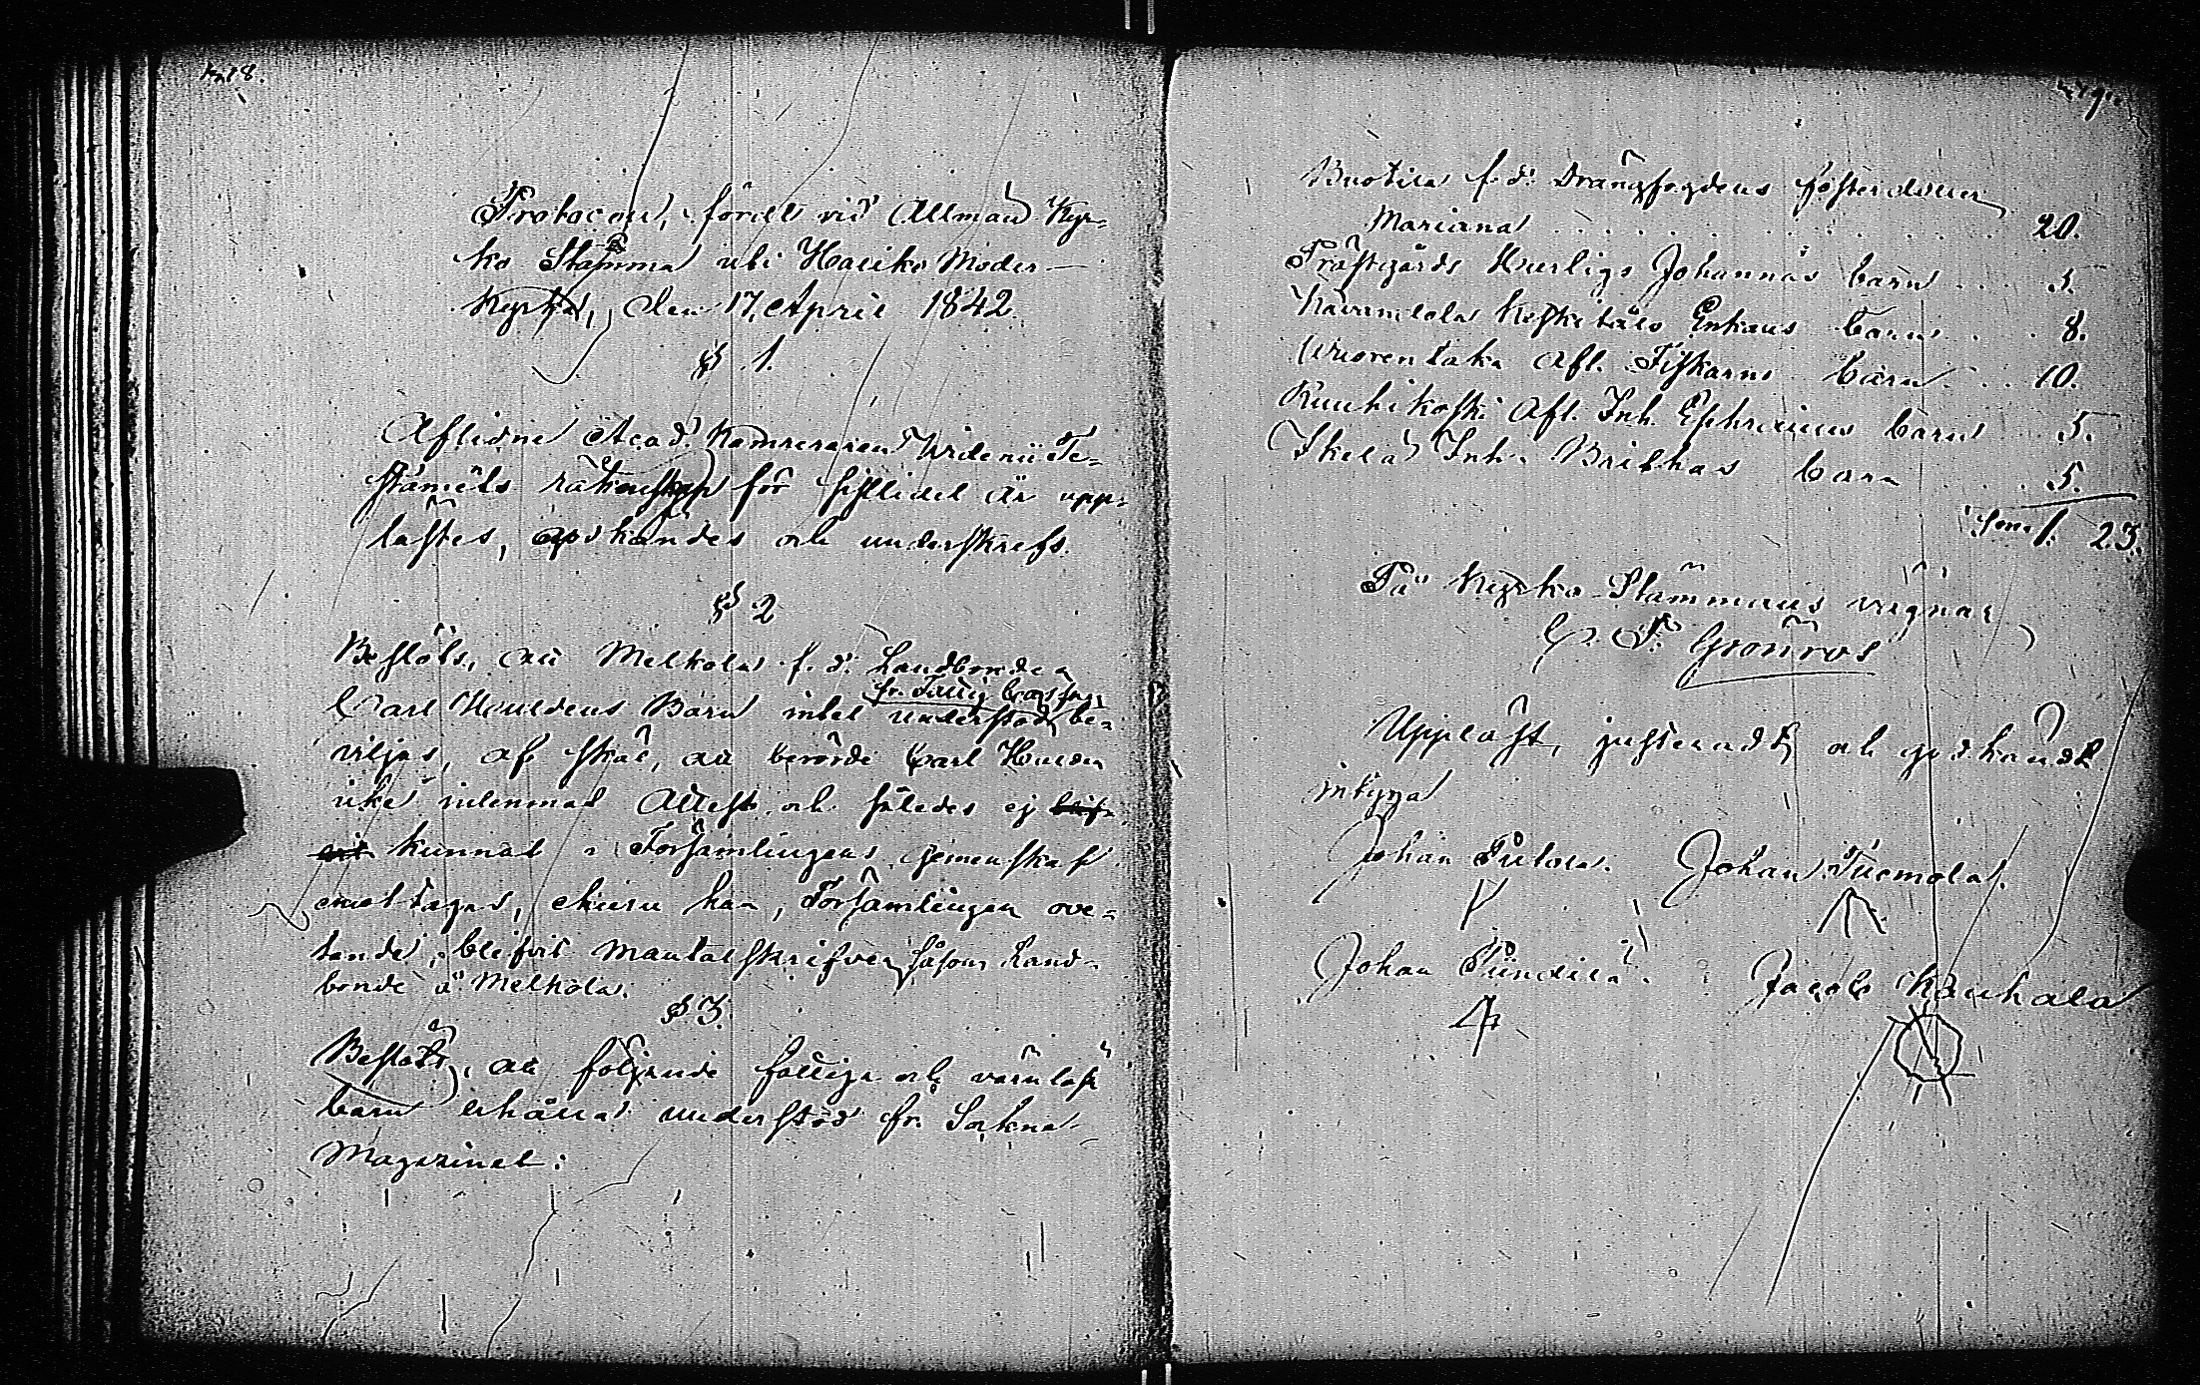 Protocoll, fördt vid Allmän Kyr-
ko Stämma uti Hauho Moder-
Kyrka, den 17 April 1842.
§ 1.
Aflidne Acad. Kamreraren Widenii Te-
staments räkenskap för sistlidet år upp-
lästes, godkändes och underskrefs.
§ 2
Beslöts, att Melkola f. d. Landbonden
fr. Fattig Cassan
Carl Hulldens Barn intet understöd be-
viljas, af skäl, att berörde Carl Hullden
icke inlemnat Attest och således ej blif-
vit kunnat i Församlingens gemenskap
emottagas, ehuru han, Församlingen ove-
tande, blifvit mantalskrifven såsom Land-
bonde å Melkola.
§ 3.
Beslöts, att följande fattiga och värnlösa
barn erhålla understöd fr. Sockne
Magazinet:
f. d. Drängfogdens fosterdotter
Mariana . . . 20.
Prästgårds Johannas barn . . . 5.
Enkans barn . . 8.
Wuorentaka Afl. Fiskarns barn . . 10.
Ruuhikoski Afl. Inh. Ephraims barn 5.
Inh. barn . . 5.
23.
På Kyrko-Stämmans vägnar
Grönroos
Uppläst, justeradt och godkändt
intyga
Johan Johan Tuomola.
Johan Jacob Kauhala